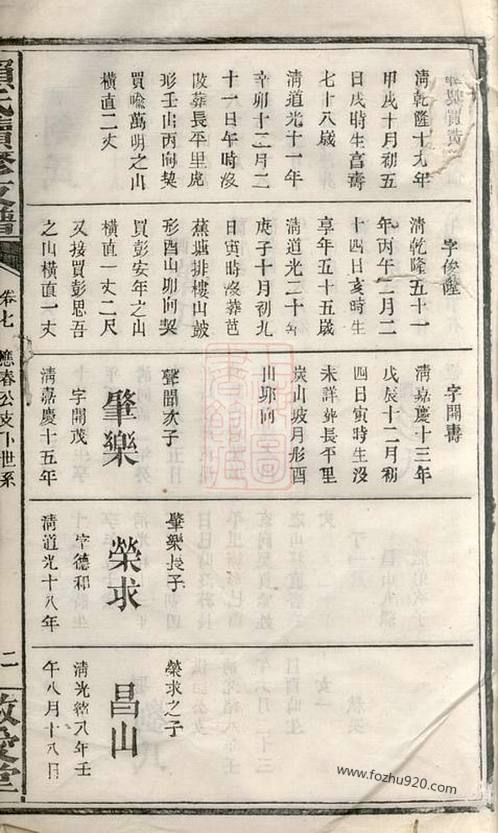 清乾隆十九年
甲戌十月初五
日戌時生享壽
七十八歲
清道光十一年
辛卯十二月二
十一日午時沒
改葬長平里虎
形壬山丙向契
買喻萬明之山
橫直二丈
字俊陞
清乾隆五十一
年丙午二月二
十四日亥時生
享年五十五歲
清道光二十年
庚子十月初九
日寅時沒葬芭
蕉塘排樓山鼓
形酉山卯向契
買彭安年之山
橫直一丈二尺
又接買彭思吾
之山橫直一丈
字開壽
清嘉慶十三年
戊辰十二月初
四日寅時生沒
未詳葬長平里
炭山坡月形酉
山卯向
聲聞次子
肇樂
字開茂
清嘉慶十五年
肇樂長子
榮求
字德和
清道光十八年
榮求之子
昌山
清光緒八年壬
午八月十八日
卷七
應春公支下世系
二
敦睦堂
www.fozhu920.com